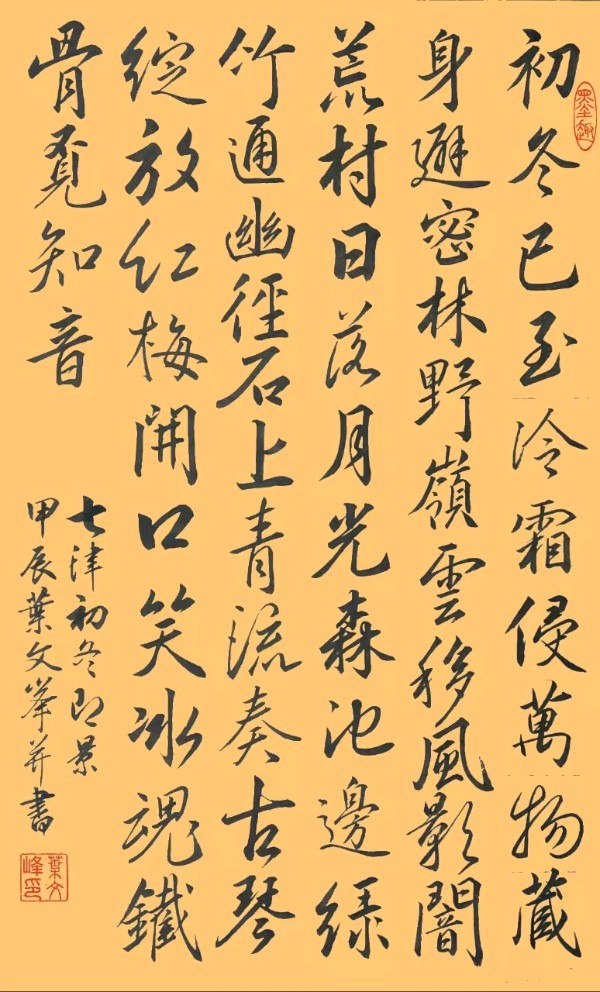 初冬已至冷霜侵萬物藏
身避密林野嶺雲移風影闇
荒村日落月光森池邊綠
竹通幽徑石上青流奏古琴
綻放紅梅開口笑冰魂鐵
骨覓知音
七律初冬即景
甲辰葉文峯并書
葉文峰印